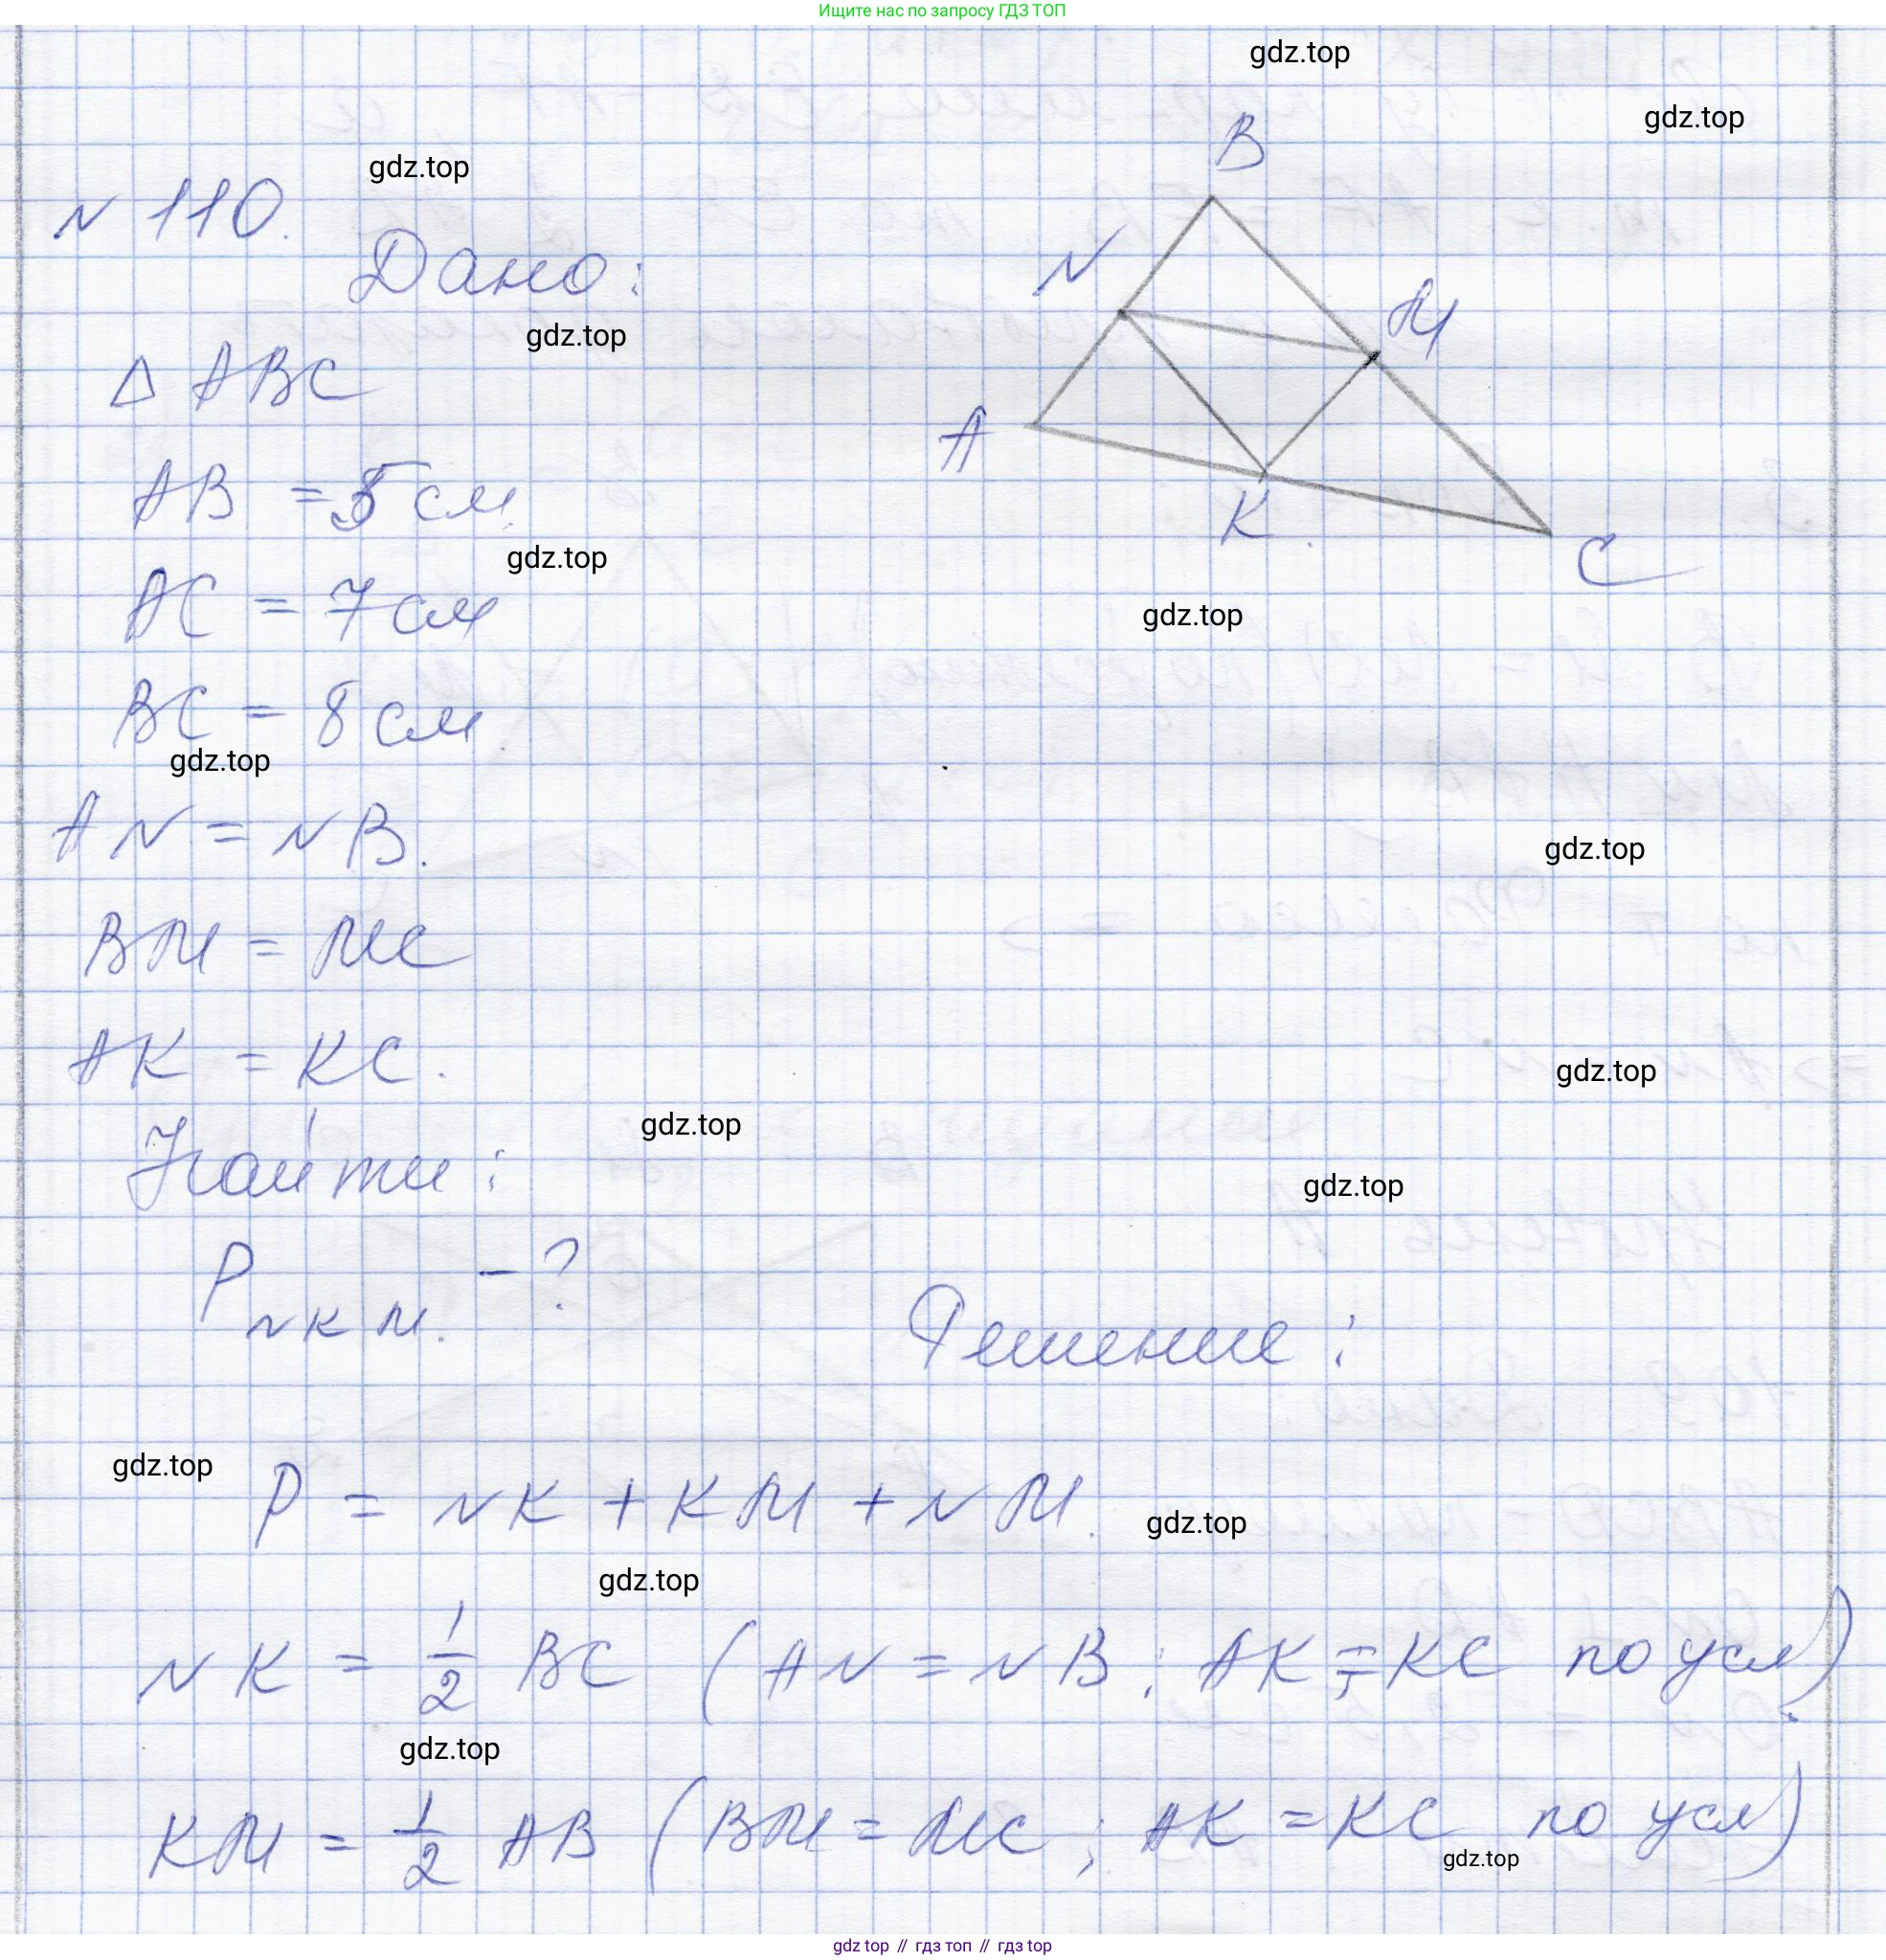 Ищите нас по запросу ГДЗ ТОП
gdz.top
gdz.top
B
gdz.top
N 110.
Дано:
N
M
gdz.top
Δ ABC
A
AB = 5 см
K.
C
gdz.top
AC = 7 см
gdz.top
BC = 8 см
gdz.top
AN = NB.
gdz.top
BM = MC
AK = KC.
gdz.top
gdz.top
Найти:
gdz.top
P NKM. - ?
Решение:
gdz.top
P = NK + KM + NM.
gdz.top
gdz.top
NK = 1/2 BC (AN = NB; AK = KC по усл)
gdz.top
KM = 1/2 AB (BM = MC; AK = KC по усл)
gdz.top
gdz top // гдз топ // gdz top